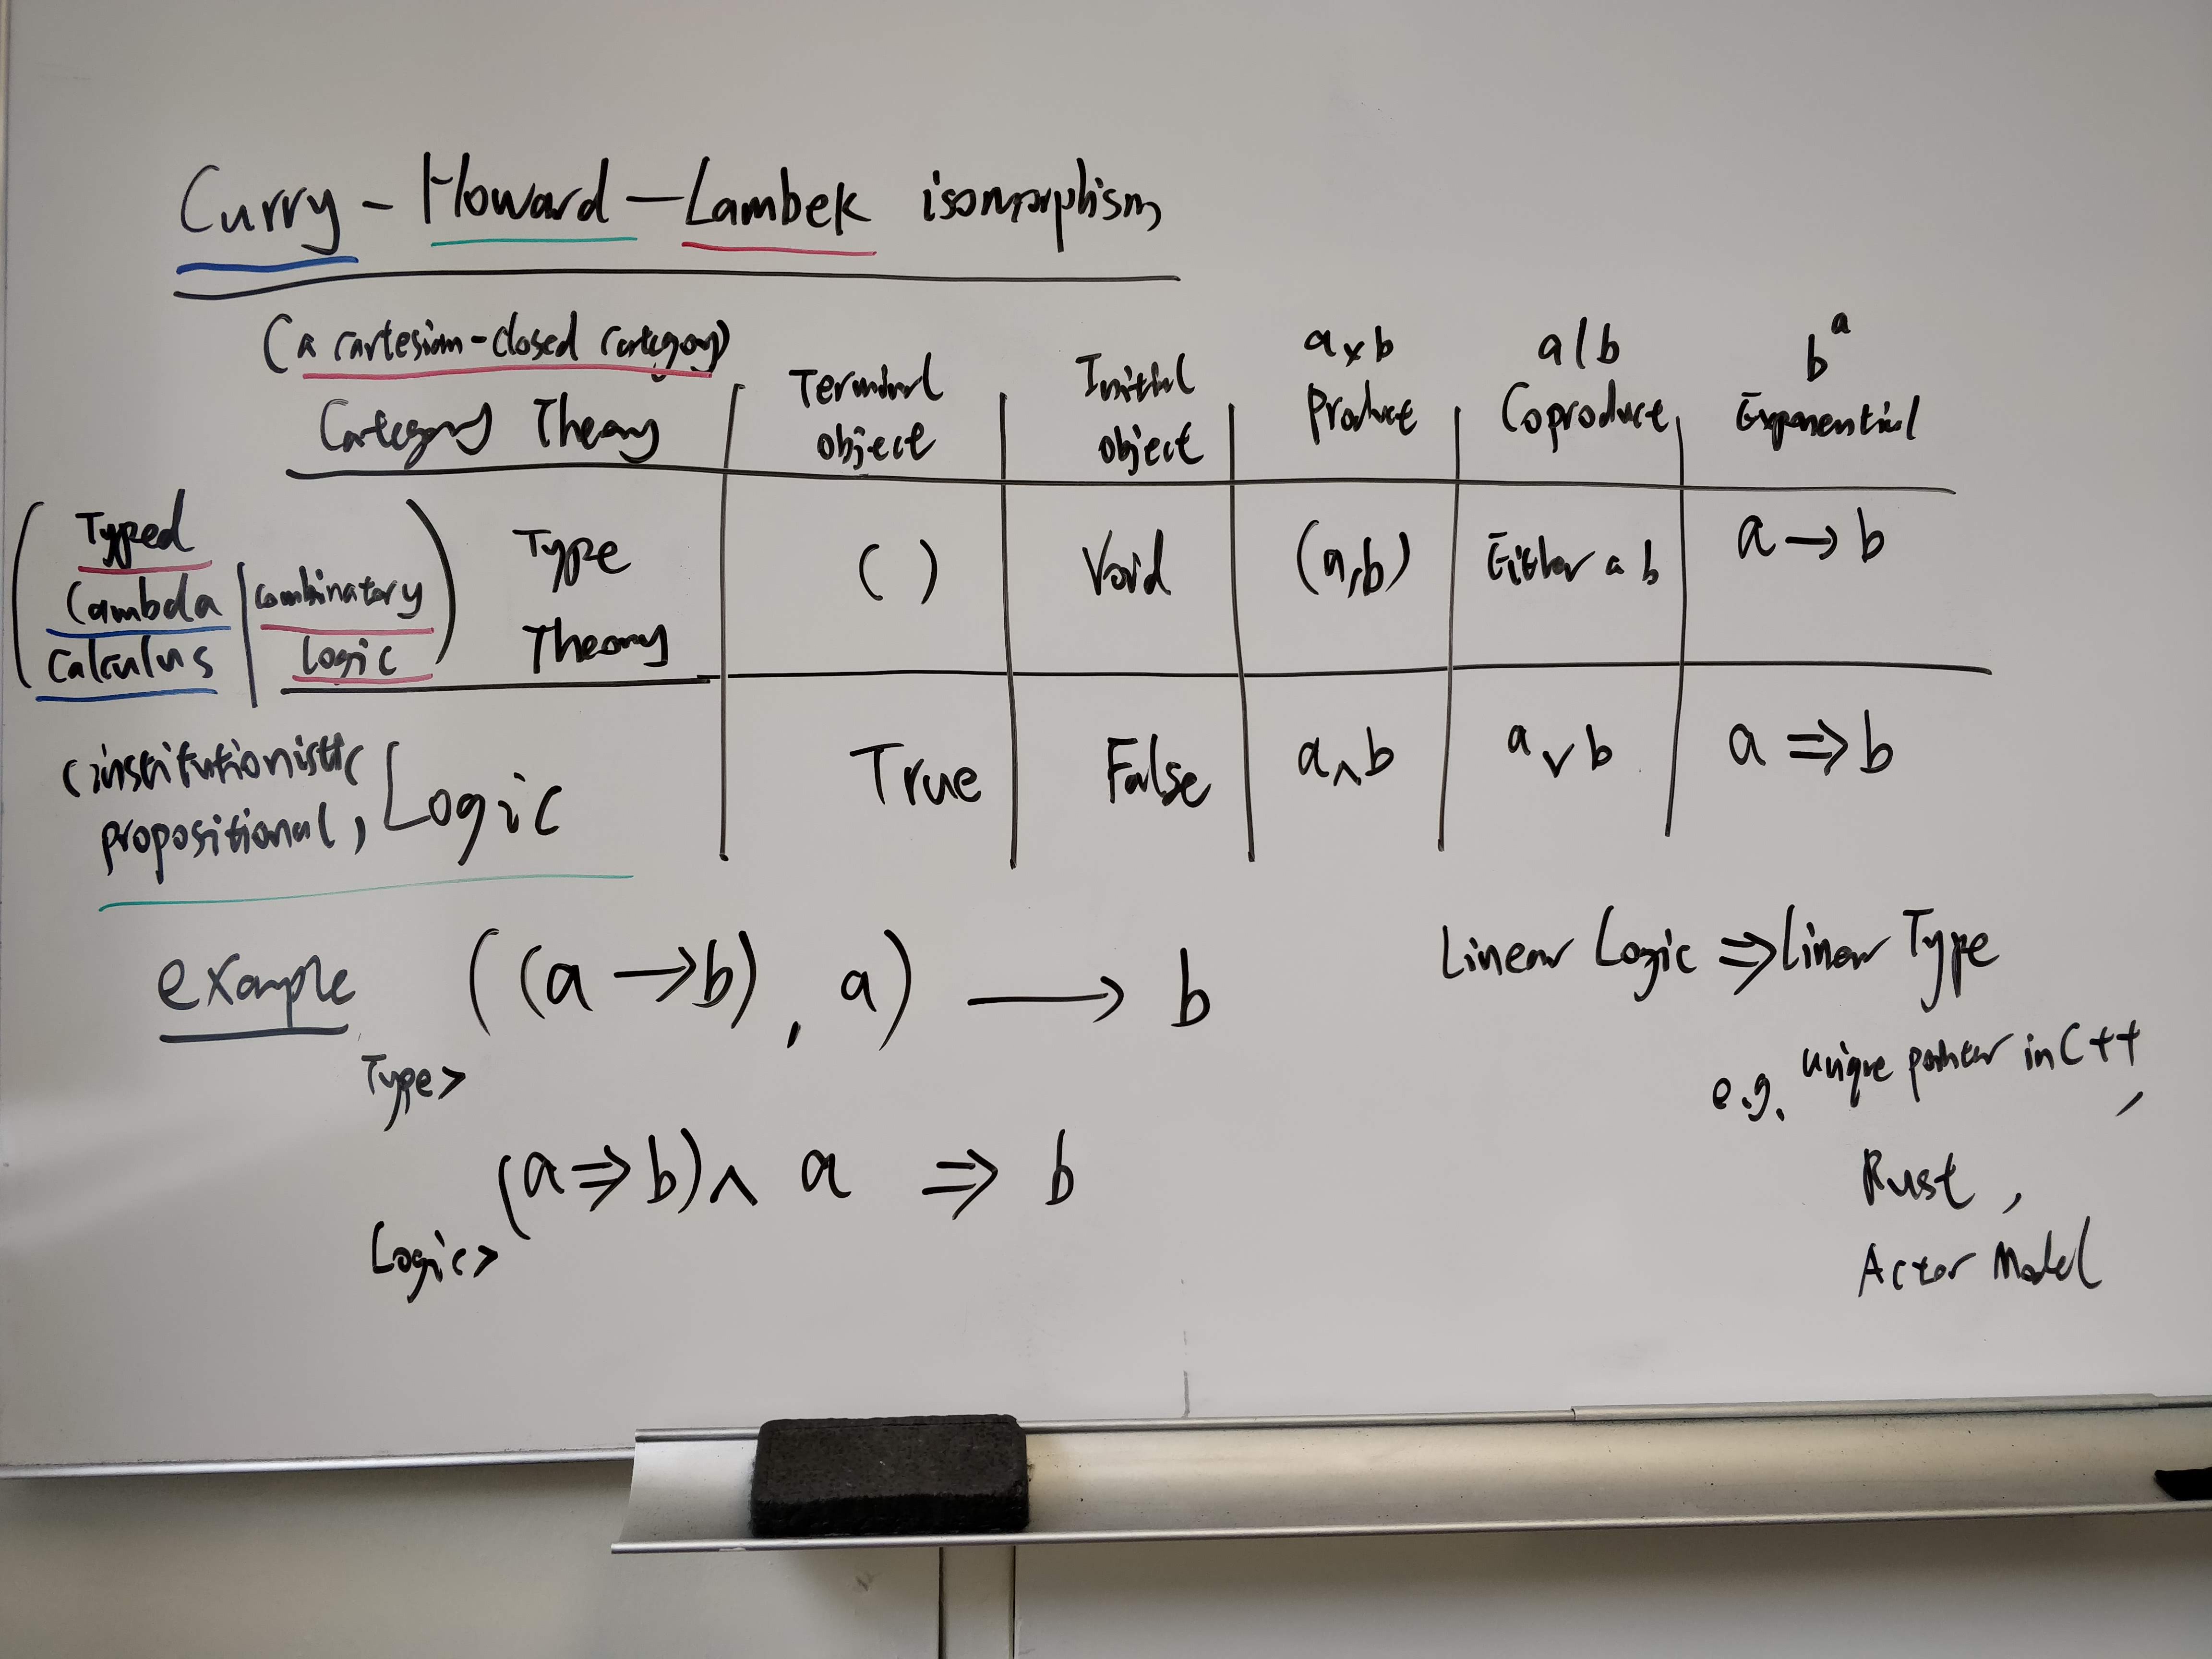 Curry - Howard - Lambek isomorphism
(a cartesian-closed category)
a × b
a | b
b^a
Category Theory
Terminal object
Initial object
Product
Coproduct
Exponential
(Typed Lambda Calculus | Combinatory Logic)
Type Theory
( )
Void
(a,b)
Either a b
a → b
(institutionistic propositional) Logic
True
False
a ∧ b
a ∨ b
a ⇒ b
example
((a → b), a) → b
Type>
(a ⇒ b) ∧ a ⇒ b
Logic>
Linear Logic ⇒ Linear Type
e.g. unique pointer in C++,
Rust,
Actor Model